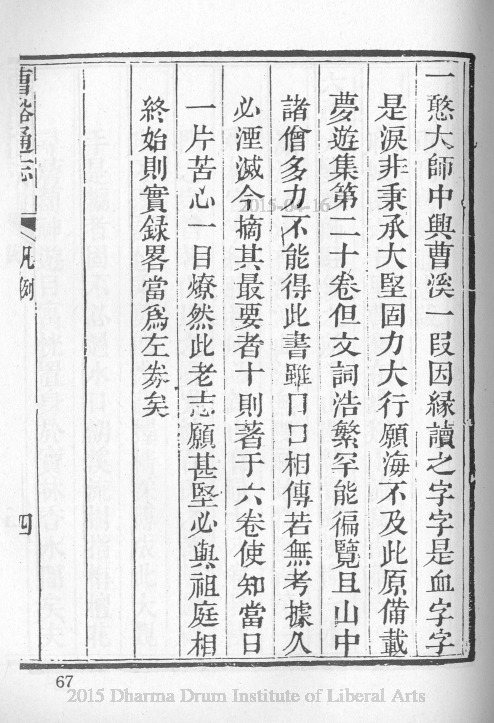 一憨大師中興曹溪一段因緣讀之字字是血字字
是淚非秉承大堅固力大行願海不及此原備載
夢遊集第二十卷但文詞浩繁罕能徧覽且山中
諸僧多力不能得此書雖口口相傳若無考據久
必湮滅今摘其最要者十則著于六卷使知當日
一片苦心一目燎然此老志願甚堅必與祖庭相
終始則實錄畧當為左劵矣
曹谿通志
凡例
四
67
2015-04-16
2015 Dharma Drum Institute of Liberal Arts